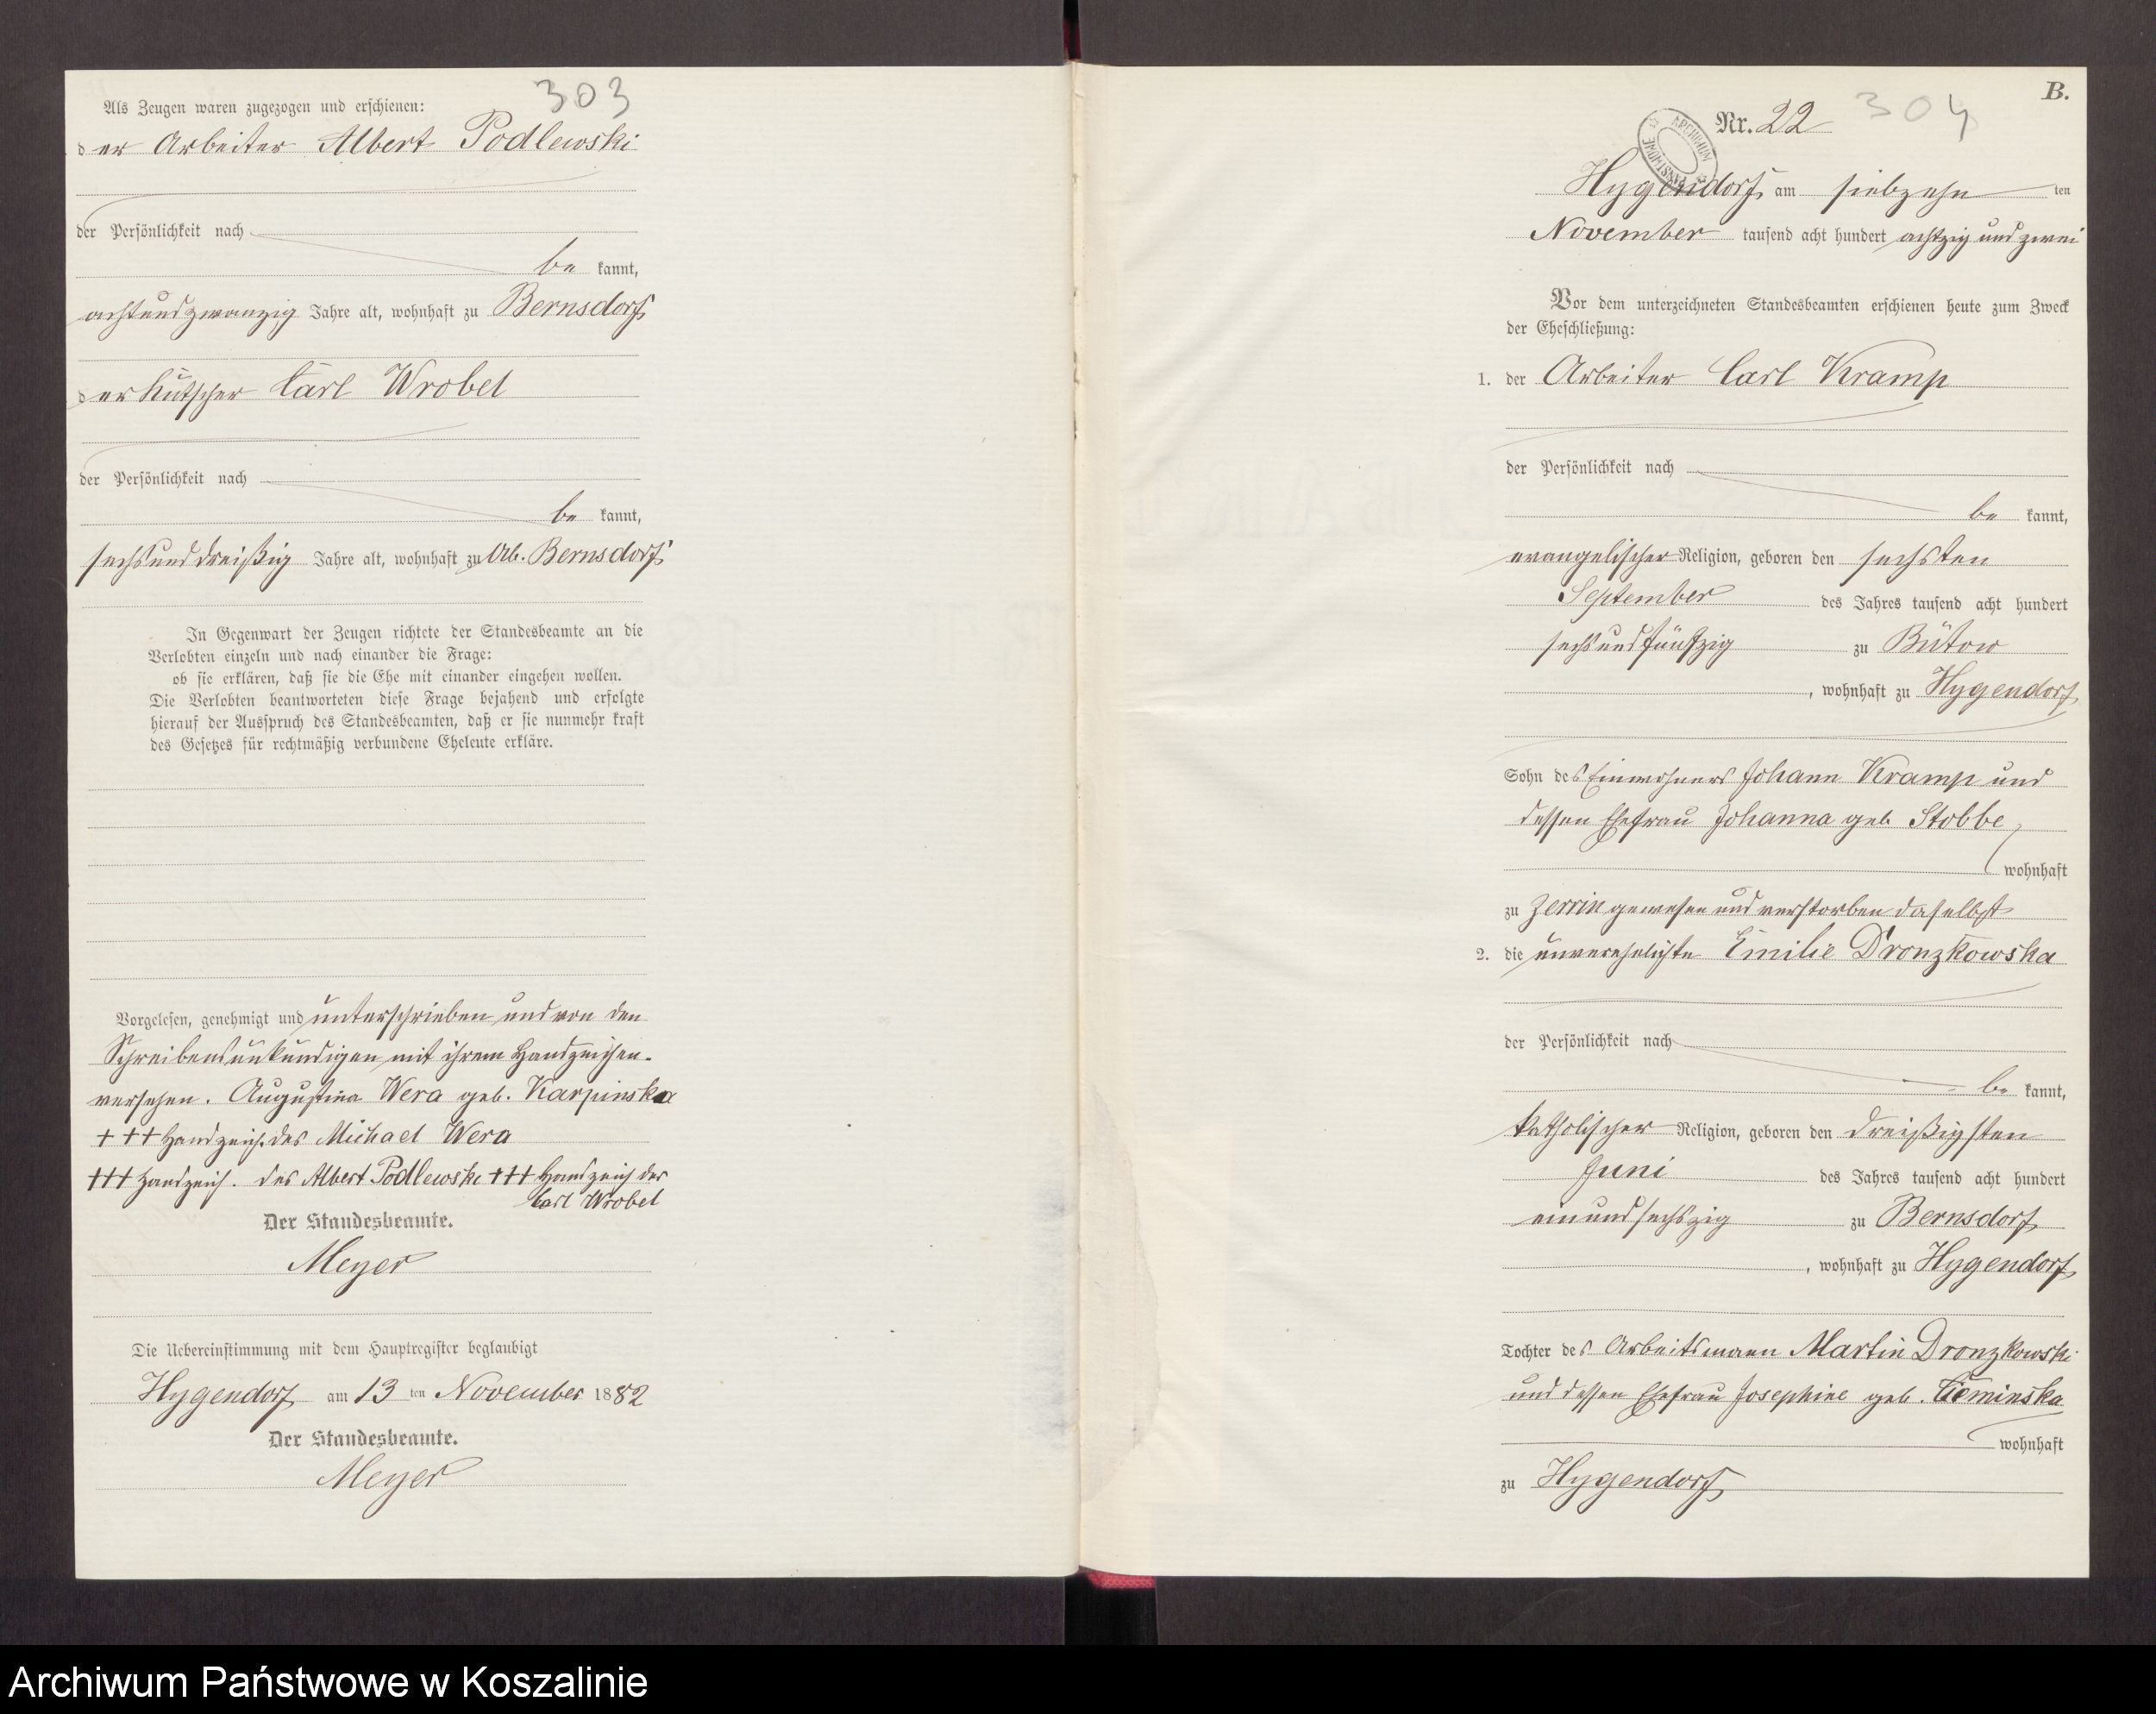 303
Als Zeugen waren zugezogen und erschienen:
der Arbeiter Albert Podlewski
der Persönlichkeit nach
be kannt,
achtundzwanzig Jahre alt, wohnhaft zu Bernsdorf
der Kutscher Carl Wrobel
der Persönlichkeit nach
be kannt,
sechsunddreißig Jahre alt, wohnhaft zu Ab. Bernsdorf
In Gegenwart der Zeugen richtete der Standesbeamte an die
Verlobten einzeln und nach einander die Frage:
ob sie erklären, daß sie die Ehe mit einander eingehen wollen.
Die Verlobten beantworteten diese Frage bejahend und erfolgte
hierauf der Ausspruch des Standesbeamten, daß er sie nunmehr kraft
des Gesetzes für rechtmäßig verbundene Eheleute erkläre.
Vorgelesen, genehmigt und unterschrieben und von den
Schreibensunkundigen mit ihrem Handzeichen
versehen. Augustina Wera geb. Karpinska
+++ Handzeich. des Michael Wera
+++ Handzeich. des Albert Podlewski +++ Handzeich des
Carl Wrobel
Der Standesbeamte.
Meyer
Die Uebereinstimmung mit dem Hauptregister beglaubigt
Hygendorf am 13 ten November 1882
Der Standesbeamte.
Meyer
B.
Nr. 22 304
ARCHIWUM PAŃSTWOWE
Hygendorf am siebzehn ten
November tausend acht hundert achtzig und zwei
Vor dem unterzeichneten Standesbeamten erschienen heute zum Zweck
der Eheschließung:
1. der Arbeiter Carl Kramp
der Persönlichkeit nach
be kannt,
evangelischer Religion, geboren den sechsten
September des Jahres tausend acht hundert
sechsundfünfzig zu Bütow
, wohnhaft zu Hygendorf
Sohn des Einwohners Johann Kramp und
dessen Ehefrau Johanna geb Stobbe
wohnhaft
zu Zerrin gewesen und verstorben daselbst
2. die unverehelichte Emilie Dronzkowska
der Persönlichkeit nach
be kannt,
katholischer Religion, geboren den dreißigsten
Juni des Jahres tausend acht hundert
einundsechszig zu Bernsdorf
, wohnhaft zu Hygendorf
Tochter des Arbeitsmann Martin Dronzkowski
und dessen Ehefrau Josephine geb. Cieminska
wohnhaft
zu Hygendorf
Archiwum Państwowe w Koszalinie